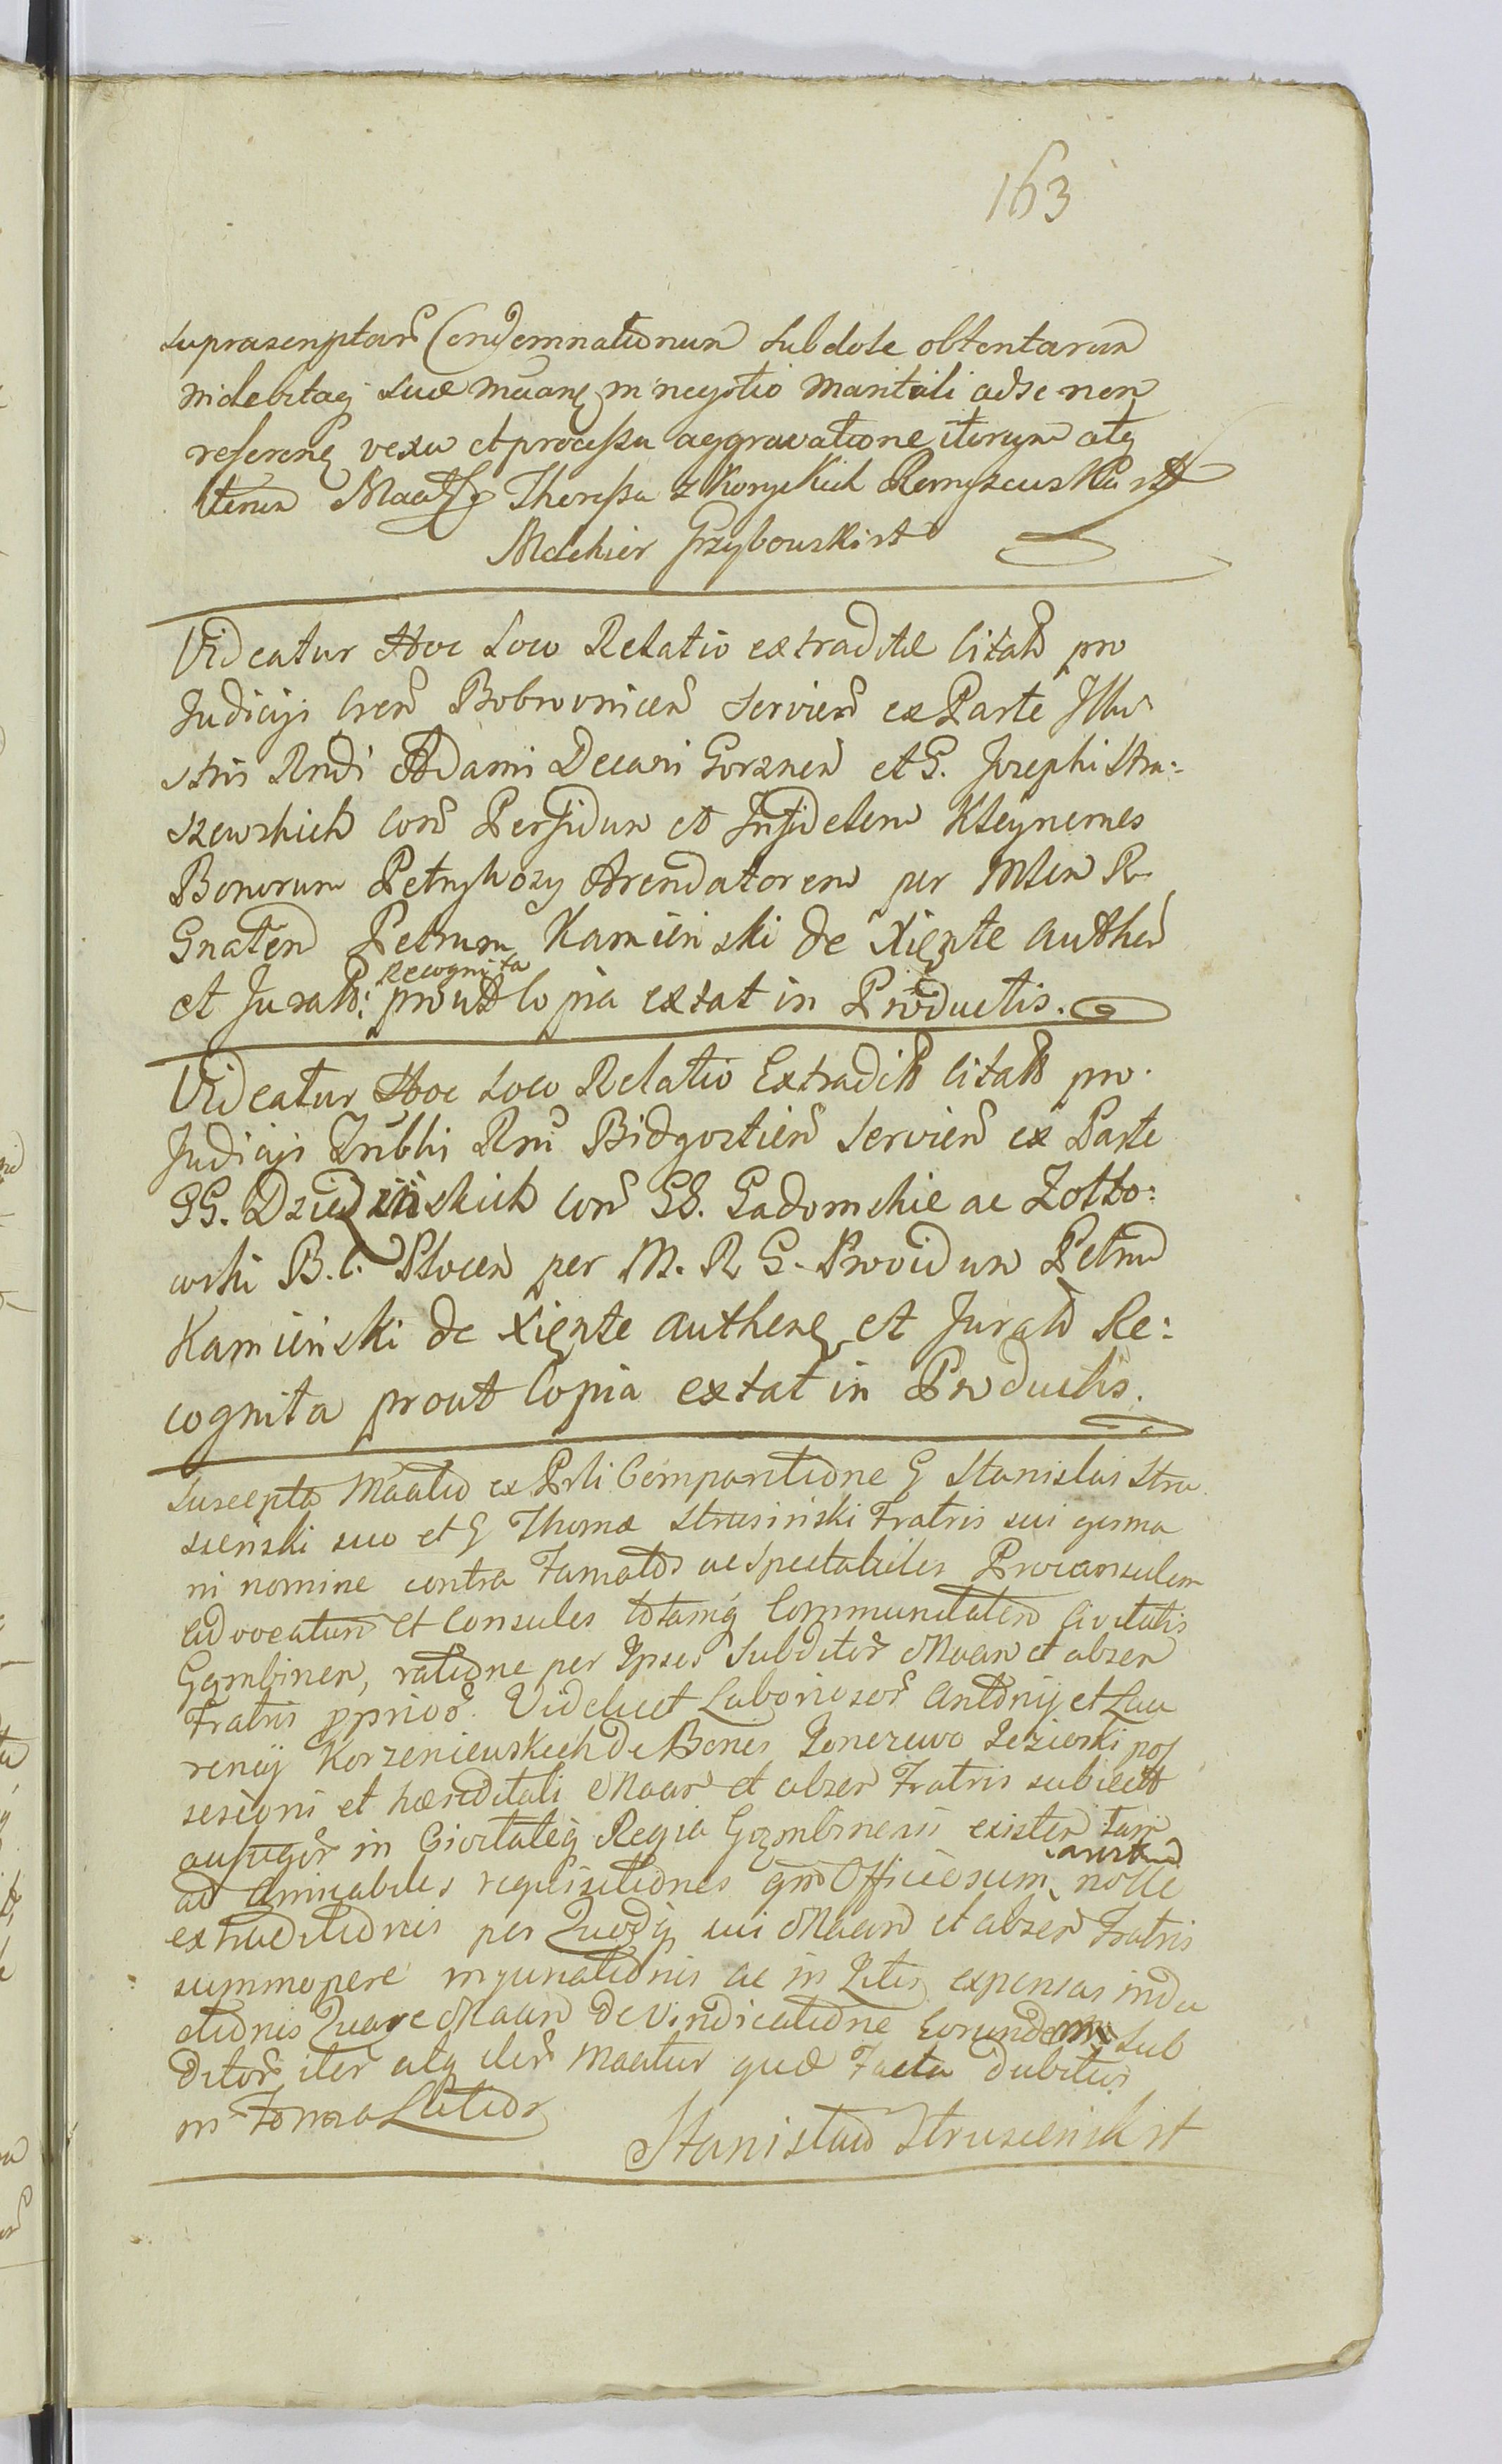 163
suprascriptar Condemnationum subdole obtentarum
indebitaq sua māanę in negotio Maritali ad se non
referenę vexa et processu aggravatione iterum atq
iterum Maatf Theressa z Koryckich Remyszewska
Melchior Grzybowski
Videatur Hoc Loco Relatio extraditae Citatō pro
Judicijs Cren Bobrovnicen Servien ex Parte Illu
stris Rndi Adami Decani Gorznen et G. Josephi Stra:
szewskich Con Perfidum et Infidelem Kleynernes
Bonorum Petrykozy Arendatorem per Mlem R
Gnalem Petrum Kamieński de Xięzte Authen
Recognita
et Jurat: prout Copia extat in Productis.
Videatur Hoc Loco Relatio Extradit Citatō pro
Judicijs Trıblı Rnı Bidgostien Servien ex Parte
GG. Dziedzińskich Con GG. Gadomskie ac Zołto:
wski B. C. Plocen per M. R G. Providum Petrum
Kamieński de Xięzte Authenę et Jurat Re:
cognita prout Copia extat in Productis.
Suscepta Maatio ex Prli Comparitione G Stanislai Stru
sienski suo et G Thomæ Strusinski Fratris sui germa
ni nomine contra Famatos ac Spectabiles Proconsulem
advocatum et Consules totamq Communitatem Civitatis
Gąmbinen, ratione per Ipsos Subditor Maan et absen
Fratris pprior. Videlicet Laboriosor Antonij et Lau
rencij Korzeniewskich de Bonis Jezierski pos
sesioni et hæreditati Maan et absen Fratris subiect
aufugor in Civitateq Regia Gąmbinensi existen tam
ad Amicabiles requisitiones qm Officiosum nolle
extraditionis per Quodq sui Maan et absen Fratris
summopere injuriationis ac in Litis expensas indu
ctionis Quare Maan de Vindicatione Eorundem Sub
ditor iter atq iter Maatur quæ Facta dubitur
in Forma
Stanisław Strusieński